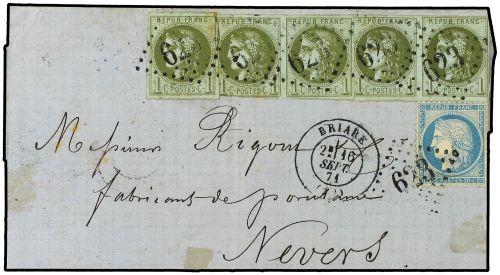 REPUB·FRANC· REPUB·FRANC· REPUB·FRANC· REPUB·FRANC· REPUB·FRANC·
62 62 623 623 623
1 C·POSTES·C 1 1 C·POSTES·C 1 1 C·POSTES·C 1 1 C·POSTES·C 1 1 C·POSTES·C 1
REPUB·FRANC
BRIARE
2E 16
SEPT.
71
623
Messieurs Rigout
fabricants de
Nevers